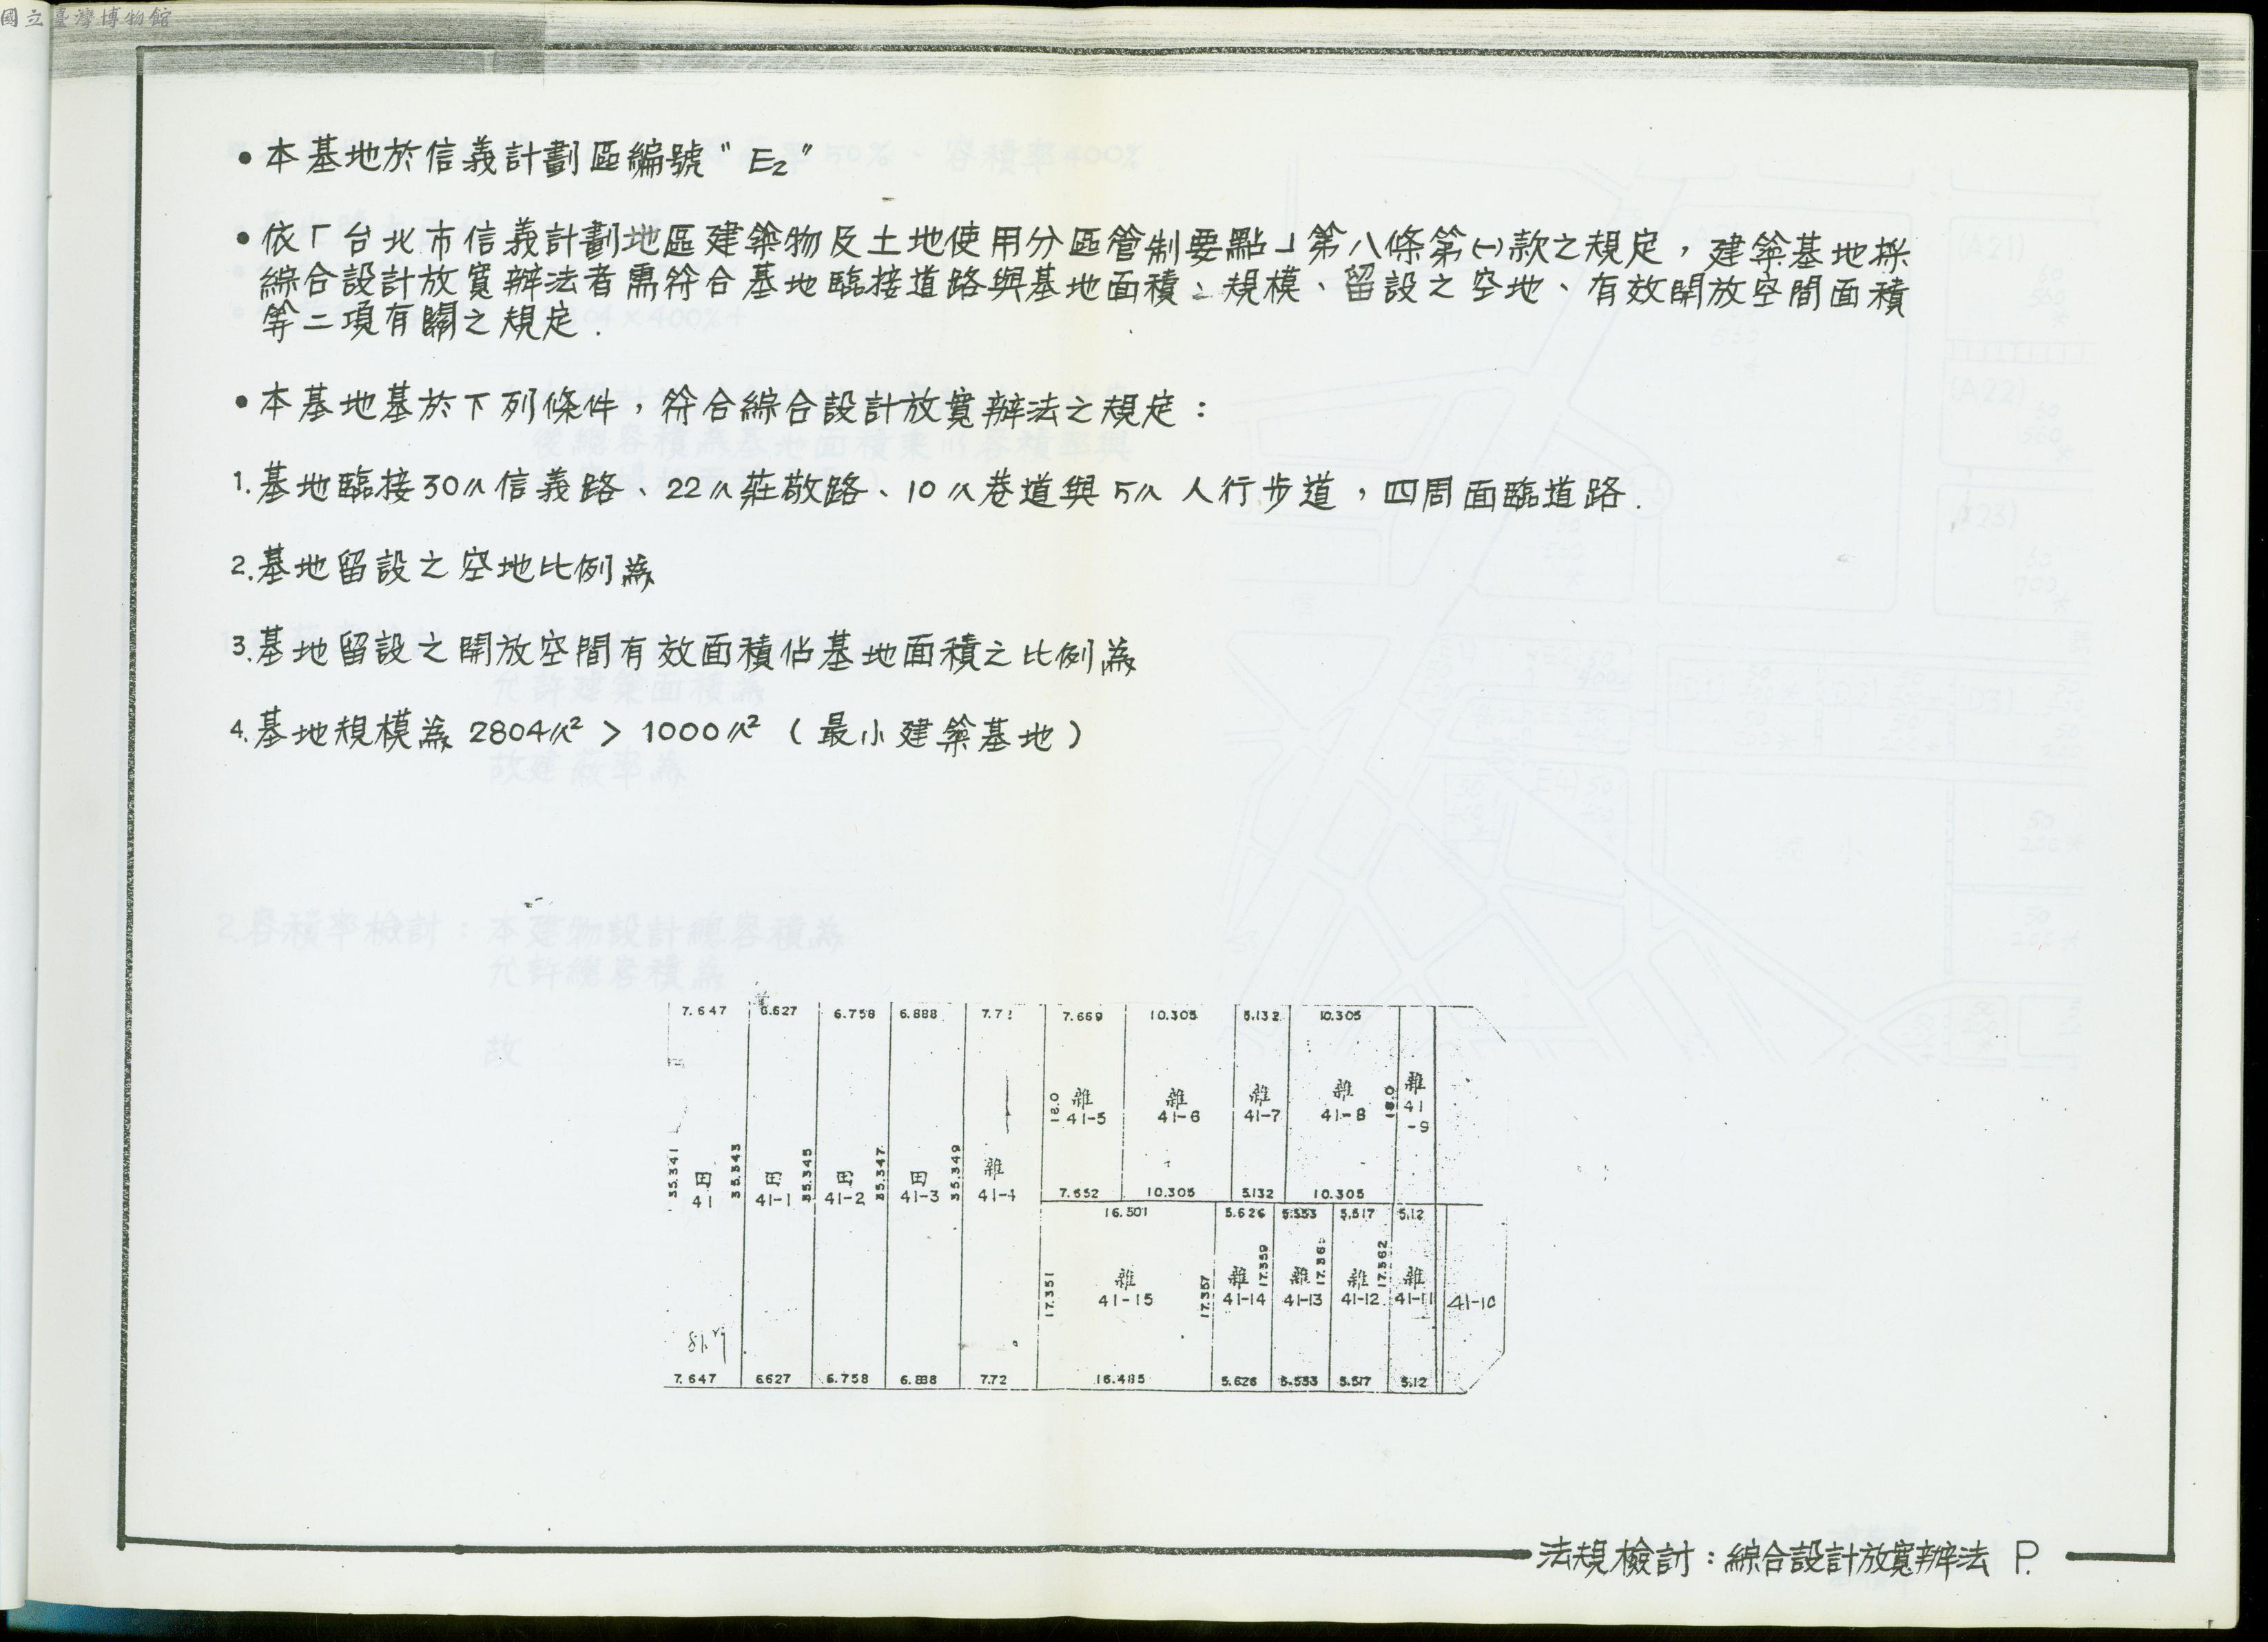 國立臺灣博物館
• 本基地於信義計劃區編號“E₂”
• 依「台北市信義計劃地區建築物及土地使用分區管制要點」第八條第(一)款之規定，建築基地採
綜合設計放寬辦法者需符合基地臨接道路與基地面積、規模、留設之空地、有效開放空間面積
等二項有關之規定.
• 本基地基於下列條件，符合綜合設計放寬辦法之規定：
1. 基地臨接30M信義路、22M莊敬路、10M巷道與5M人行步道，四周面臨道路.
2. 基地留設之空地比例為
3. 基地留設之開放空間有效面積佔基地面積之比例為
4. 基地規模為 2804M² > 1000M²（最小建築基地）
7.647 6.627 6.758 6.888 7.669 10.305 5.132 10.305
18.0 雜 41-5 雜 41-6 雜 41-7 雜 41-8 18.0 雜 41-9
35.341 田 41 35.343 田 41-1 35.345 田 41-2 35.347 田 41-3 35.349 雜 41-4
7.652 10.305 5.132 10.305
16.501 5.626 5.553 5.517 5.12
17.351 雜 41-15 17.357 雜 41-14 17.359 雜 41-13 雜 41-12 17.362 雜 41-11 41-10
7.647 6.627 6.758 6.888 7.72 16.485 5.626 5.553 5.517 5.12
法規檢討：綜合設計放寬辦法 P.